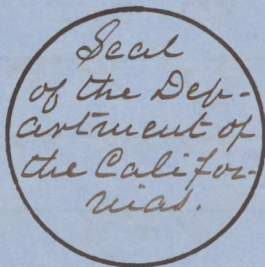 Seal
of the Dep-
artment of
the Califor-
nias.